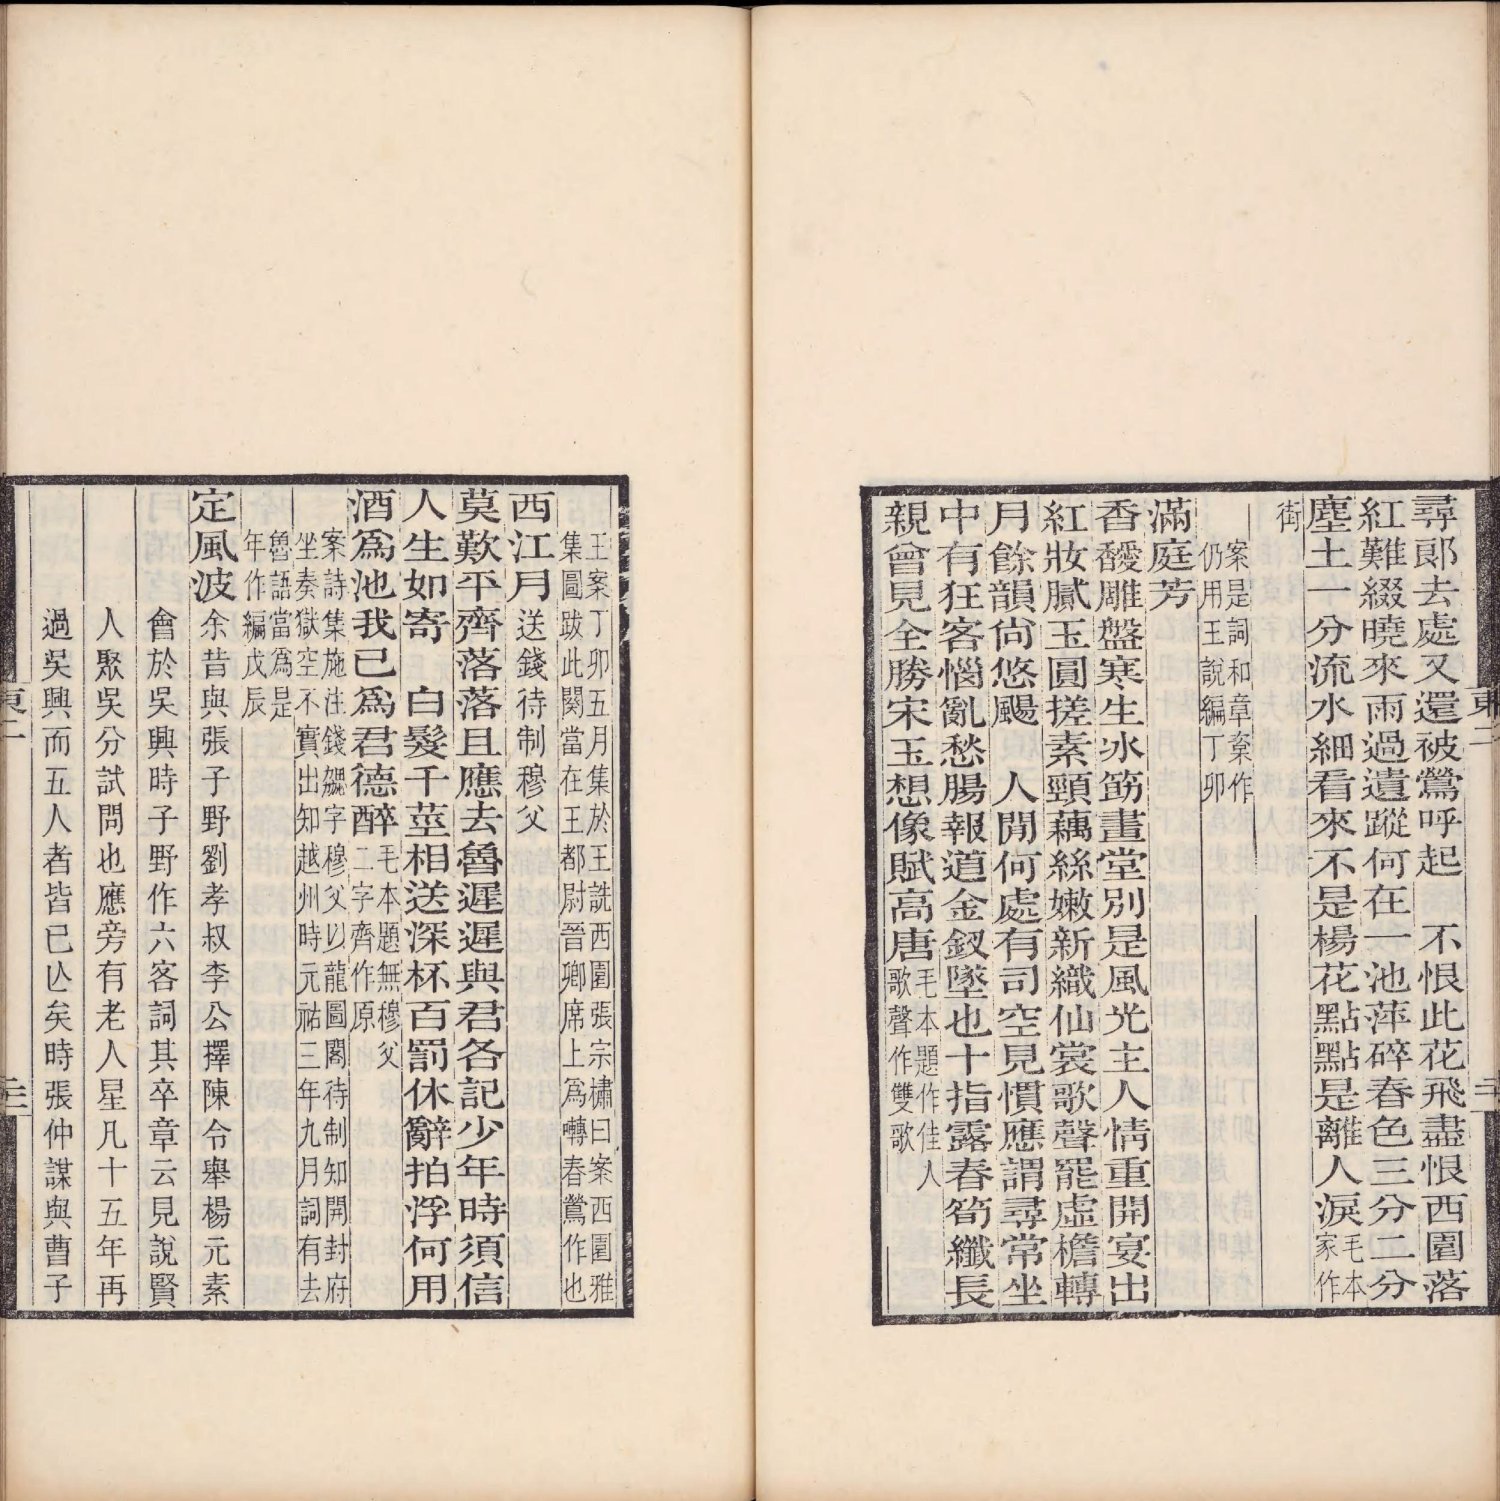 尋郞去處又還被鶯呼起　不恨此花飛盡恨西園落
紅難綴曉來雨過遺蹤何在一池萍碎春色三分二分
塵土一分流水細看來不是楊花點點是離人淚毛本家作
街
案是詞和章楶作
仍用王說編丁卯
滿庭芳
香靉雕盤寒生冰筯畫堂別是風光主人情重開宴出
紅妝膩玉圓搓素頸藕絲嫩新織仙裳歌聲罷虛檐轉
月餘韻尙悠颺　人閒何處有司空見慣應謂尋常坐
中有狂客惱亂愁腸報道金釵墜也十指露春筍纖長
親曾見全勝宋玉想像賦高唐毛本題作佳人歌聲作雙歌
東二
王案丁卯五月集於王詵西園張宗橚曰案西園雅
集圖跋此闋當在王都尉晉卿席上爲囀春鶯作也
西江月送錢待制穆父
莫歎平齊落落且應去魯遲遲與君各記少年時須信
人生如寄　白髮千莖相送深杯百罰休辭拍浮何用
酒爲池我已爲君德醉毛本題無穆父二字齊作原
案詩集施注錢勰字穆父以龍圖閣待制知開封府
坐奏獄空不實出知越州時元祐三年九月詞有去
魯語當爲是
年作編戊辰
定風波余昔與張子野劉孝叔李公擇陳令舉楊元素
會於吳興時子野作六客詞其卒章云見說賢
人聚吳分試問也應旁有老人星凡十五年再
過吳興而五人者皆已亾矣時張仲謀與曹子
東二